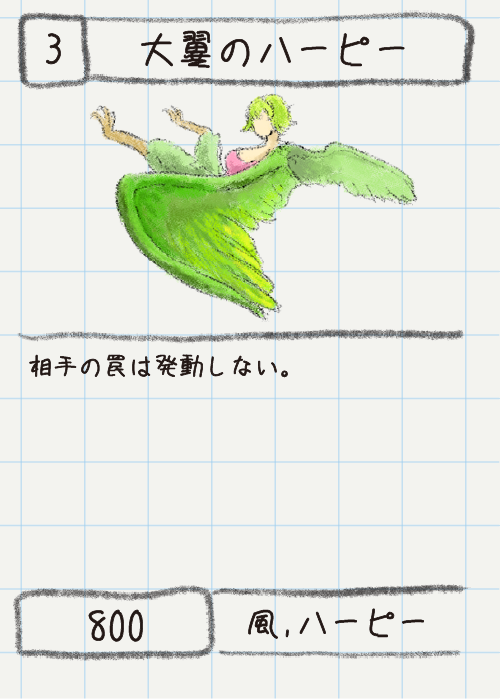 3
大翼のハーピー
相手の罠は発動しない。
800
風,ハーピー